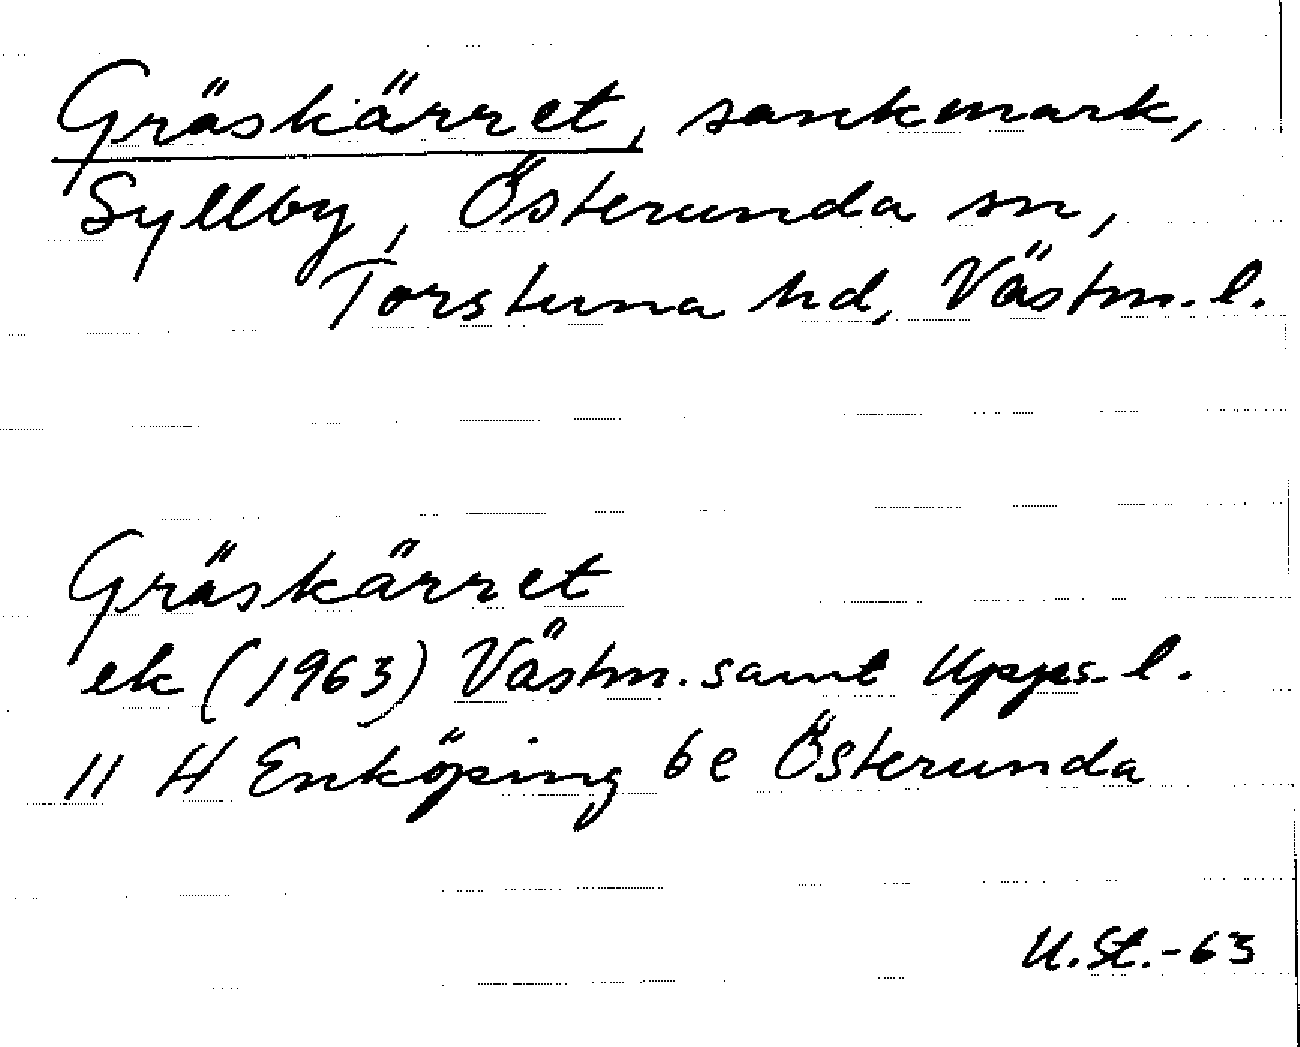 Gräskärret, sankmark,
Syllby, Österunda sn,
Torstuna hd, Västm. l.
Gräskärret
ek (1963) Västm. samt Upps. l.
11 H Enköping 6e Österunda
U.St.-63